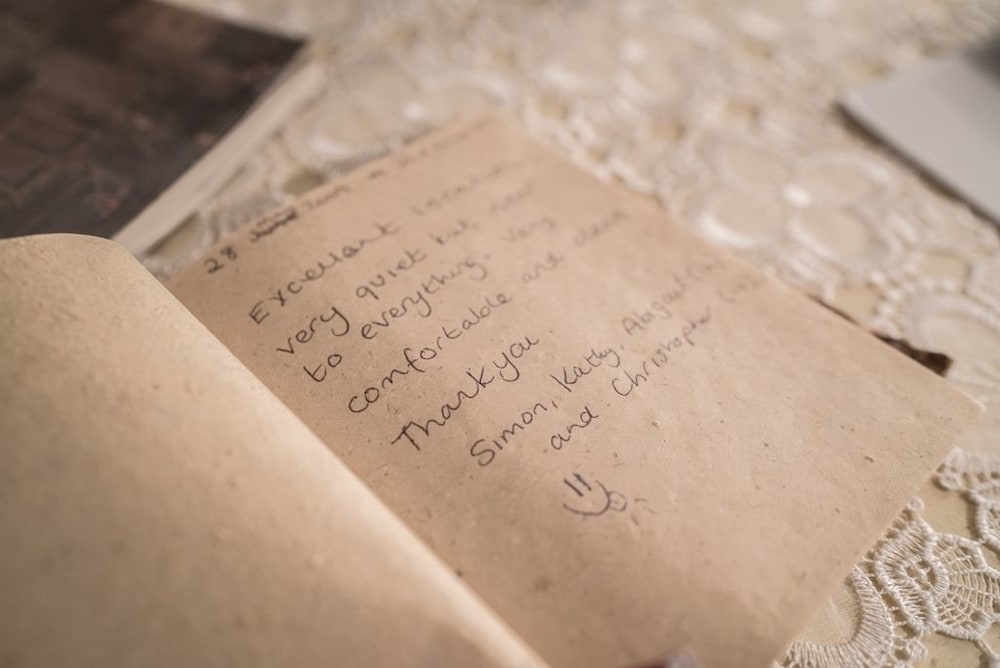 28
Excellent location
very quiet but near
to everything. Very
comfortable and clean
Thank you
Simon, Kathy, Abigail
and Christopher